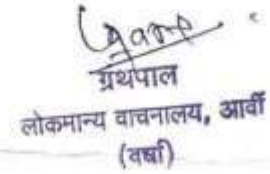 ग्रंथपाल
लोकमान्य वाचनालय, आर्वी
(वर्धा)